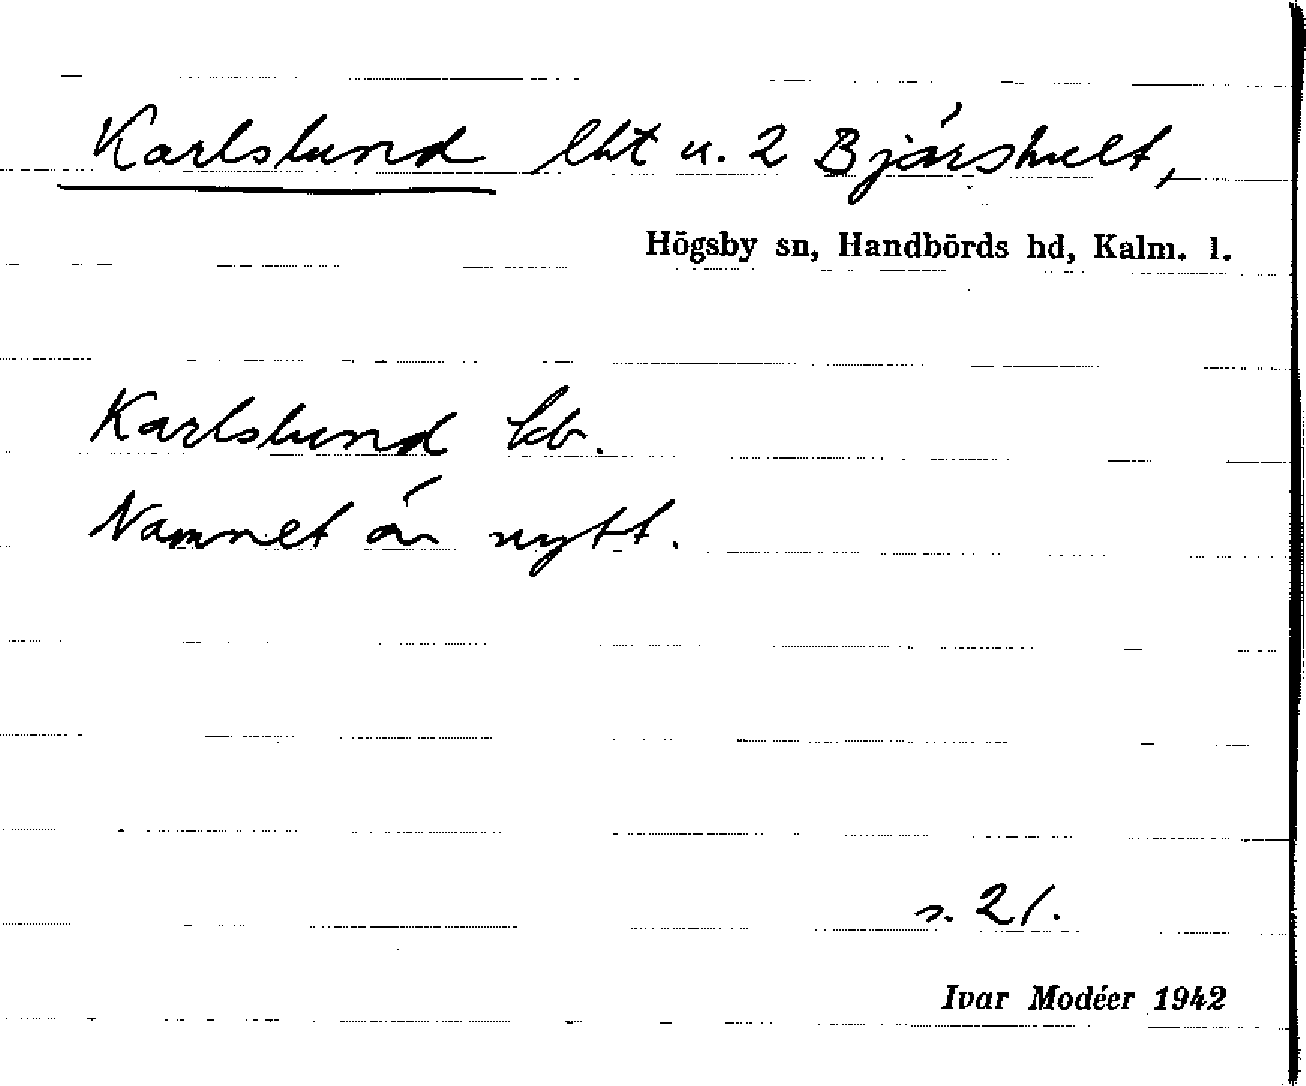 Karlslund lht u. 2 Bjärshult,
Högsby sn, Handbörds hd, Kalm. l.
Karlslund kb.
Namnet är nytt.
s. 21.
Ivar Modéer 1942